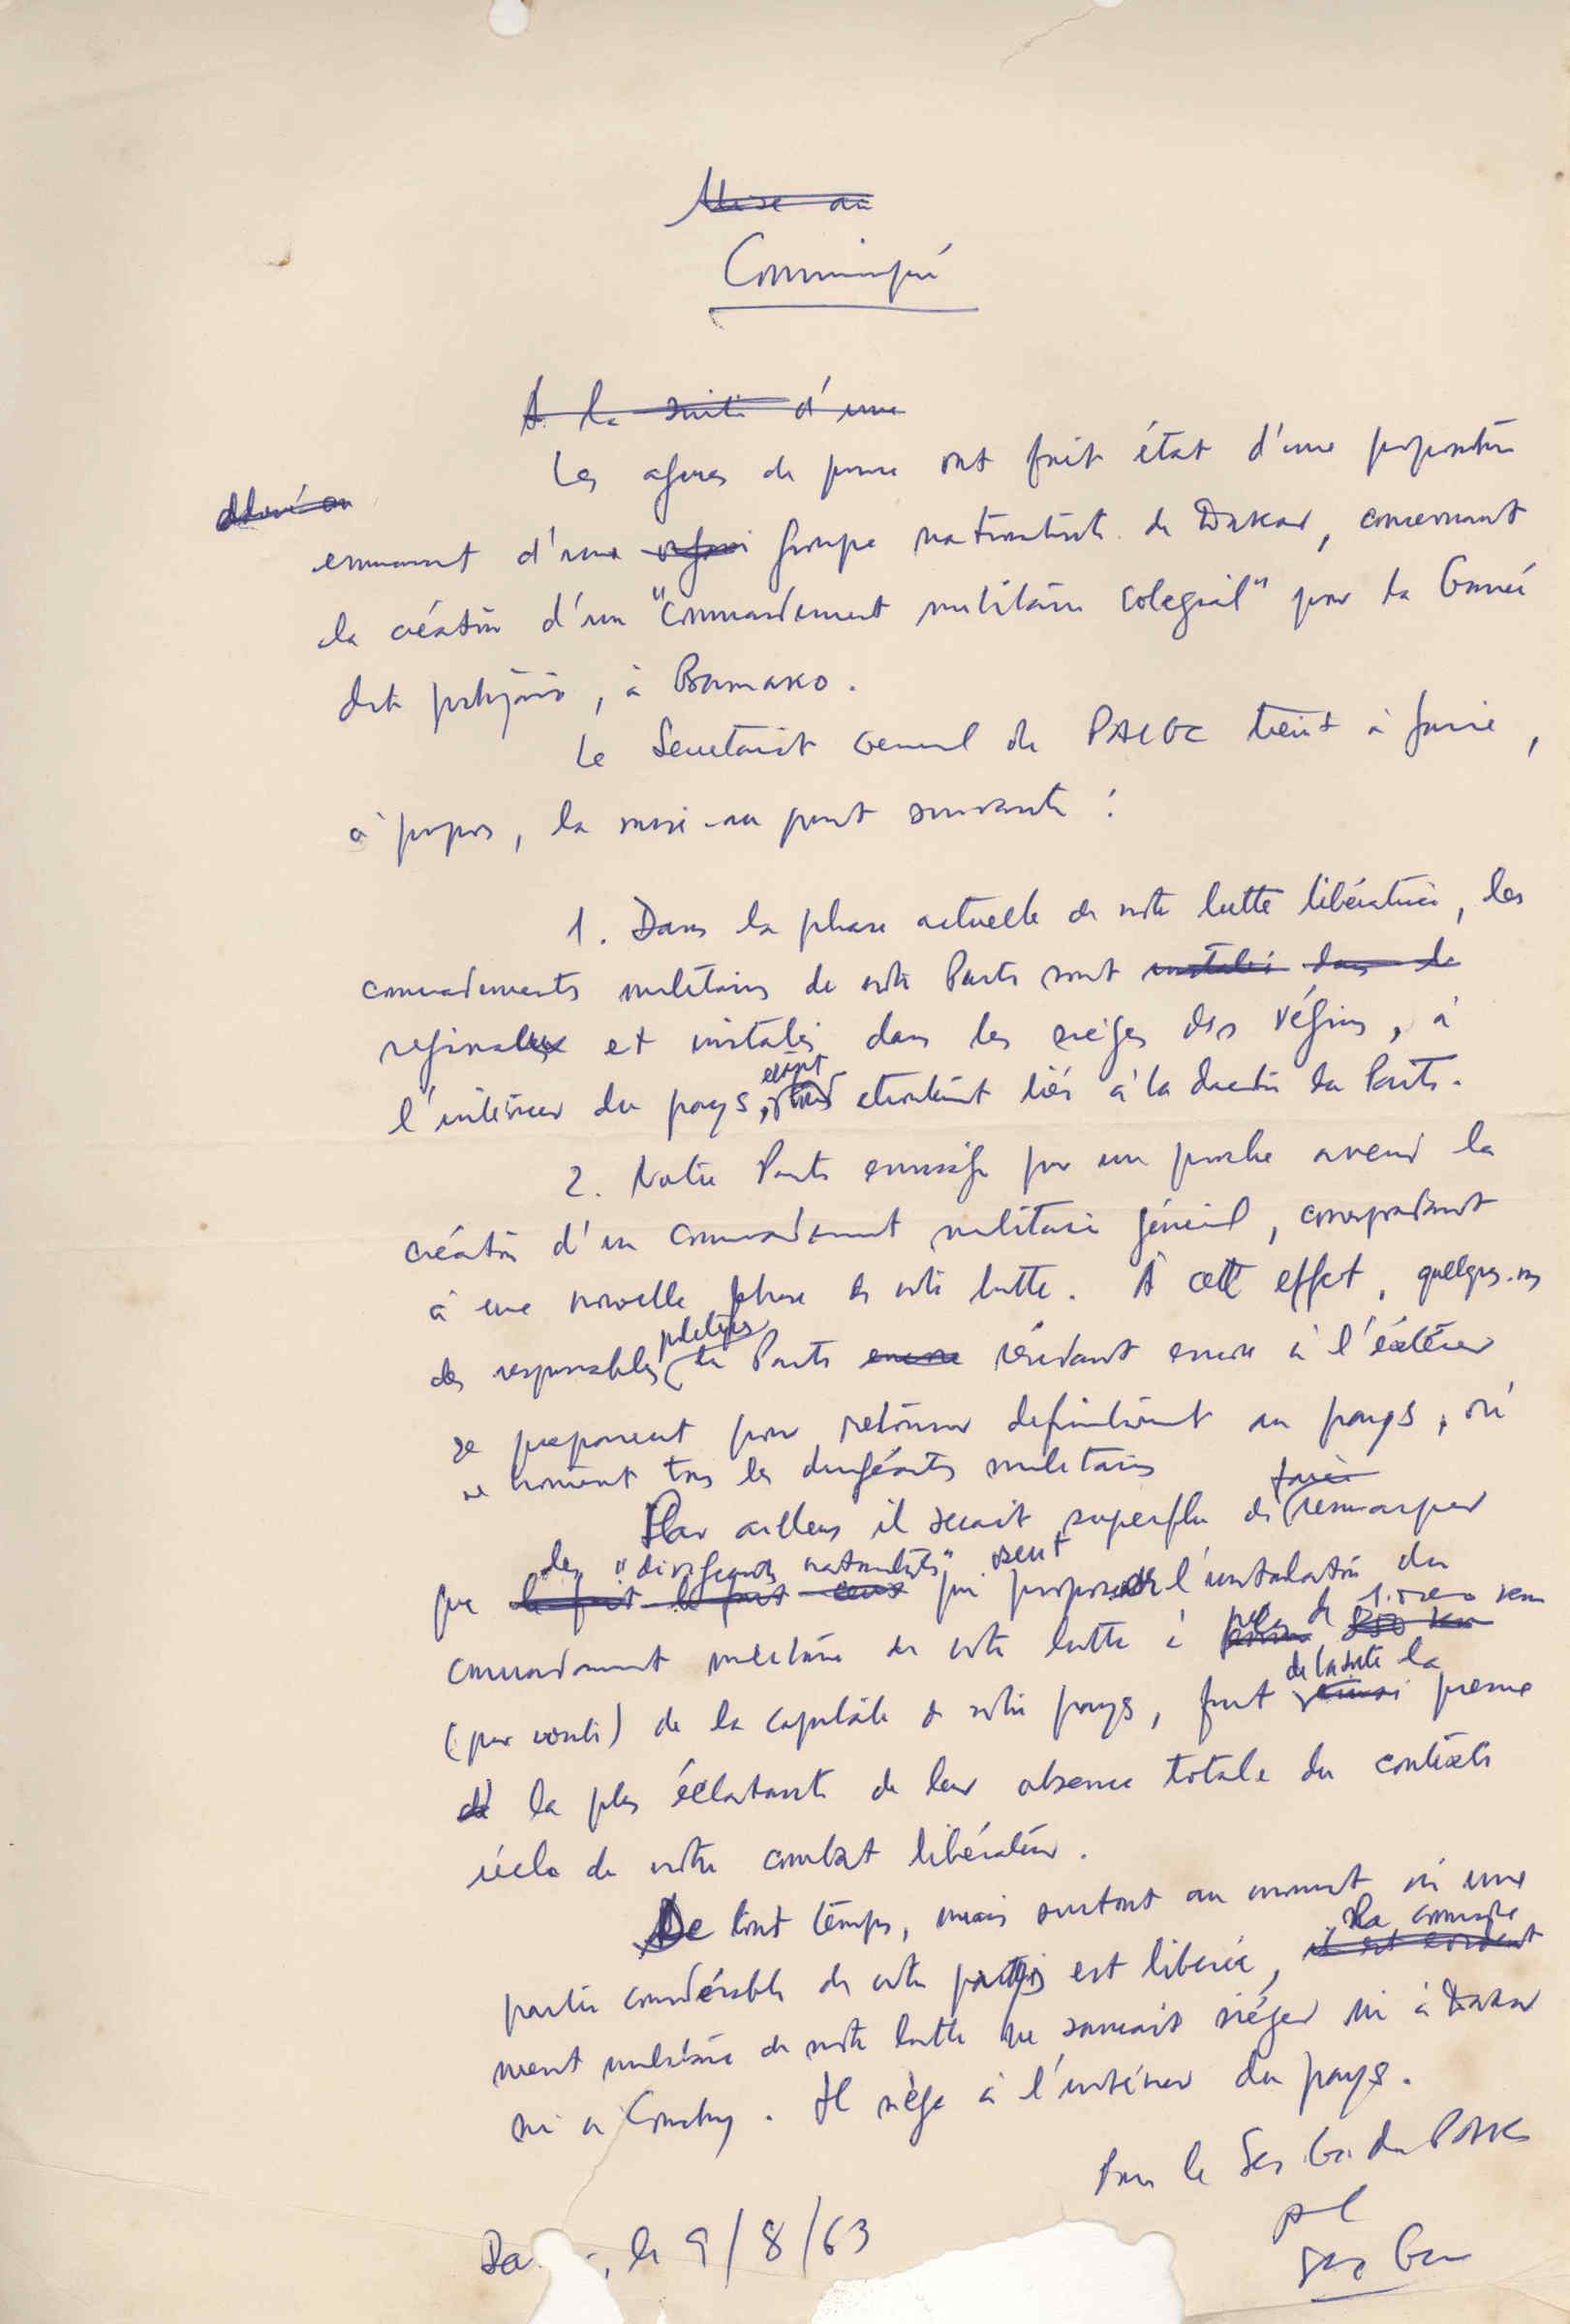 Mise au
Communiqué
A la suite d'une
Les agences de presse ont fait état d'une proposition
émanant d'une groupe nationaliste de Dakar, concernant
la création d'un "commandement militaire colegial" pour la Guinée
dite portugaise, à Bamako.
Le Secretariat General du PAIGC tient à faire,
à propos, la mise-au point suivante :
1. Dans la phase actuelle de notre lutte libératrice, les
commandements militaires de notre Parti sont installés dans le
regionaux et installés dans les sièges des régions, à
étant
l'intérieur du pays, etroitement liés à la direction du Parti.
2. Notre Parti envisage pour un proche avenir la
création d'un commandement militaire général, correspondant
à une nouvelle phase de notre lutte. A cette effet, quelques-uns
politiques
des responsables du Parti encore résidant encore à l'éxtérieur
se preparent pour retourner definitivement au pays, où
se trouvent tous les dirigéants militaires
faire
Par ailleurs il serait superflu de remarquer
des "dirigeants nationalistes" osent
que le fait le fait ceux qui proposer l'instalation du
près de 1.500 km
commandement militaire de notre lutte à 850 km
de la sorte la
(par route) de la capitale de notre pays, font ainsi preuve
la plus éclatante de leur absence totale du contexte
réel de notre combat libérateur.
De tout temps, mais surtout au moment où une
la commande
partie considérable de notre pays est liberée, il est evident
ment militaire de notre lutte ne saurait siéger ni à Dakar
ni à Conakry. Il siège à l'intérieur du pays.
Pour le Sec. Gen. du PAIGC
Da , le 9/8/63